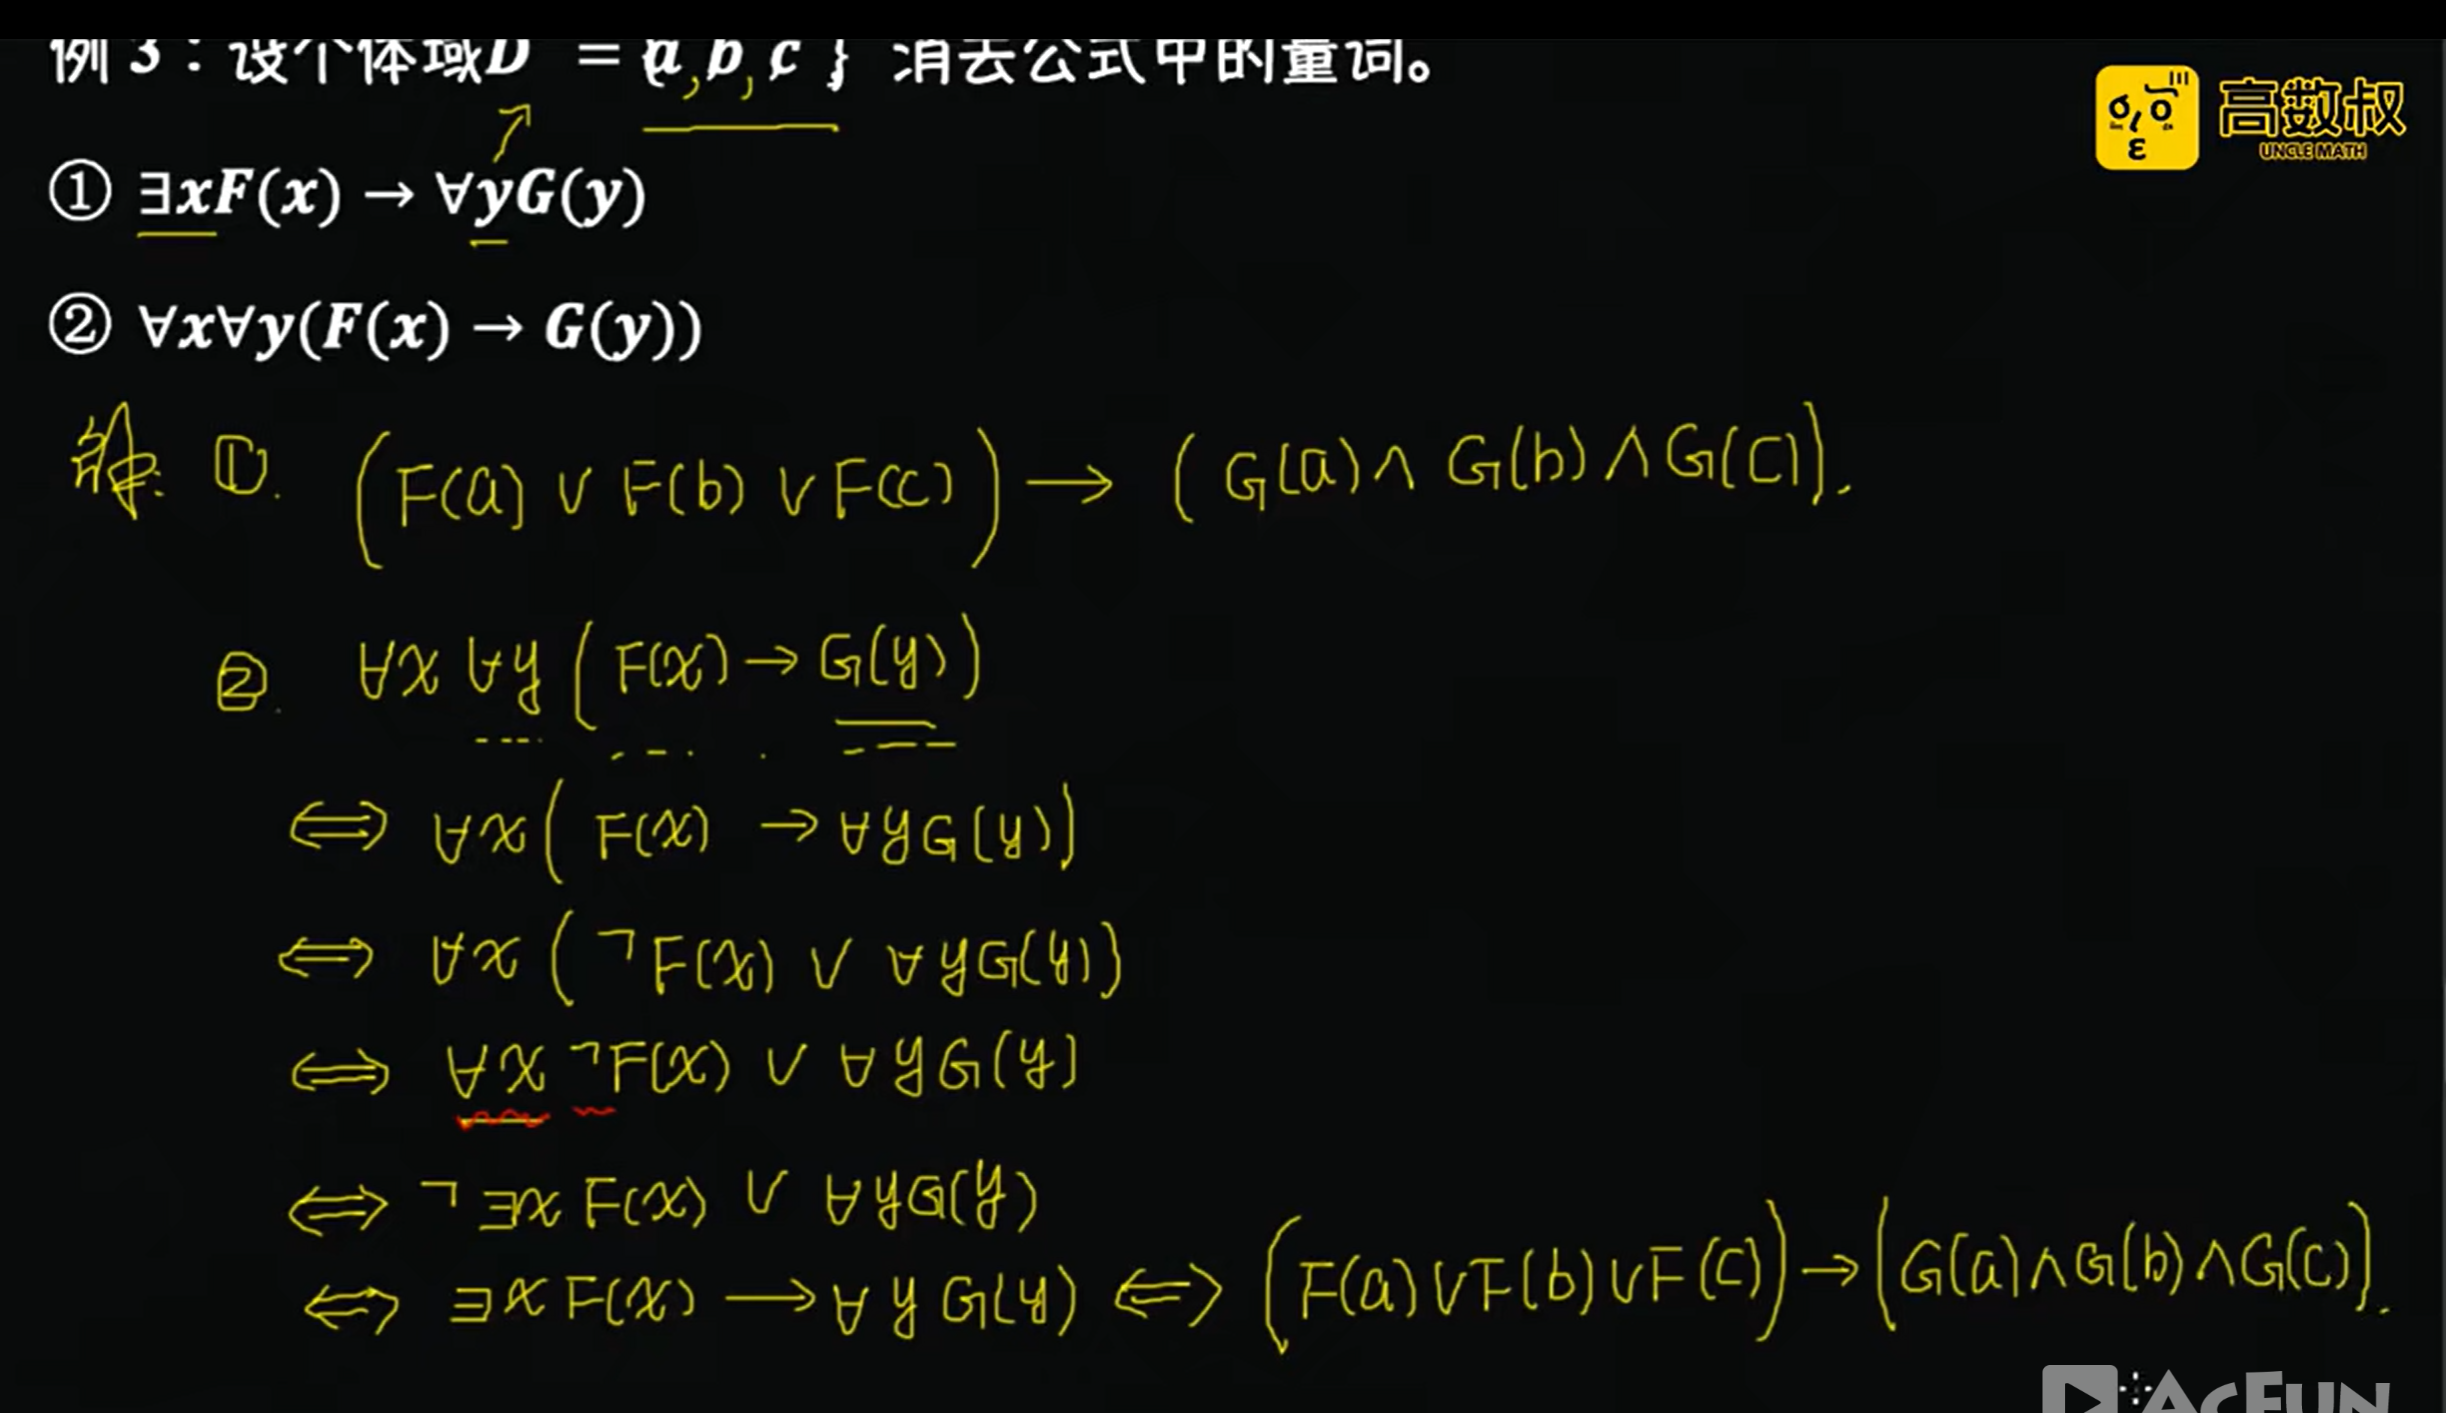 例 3：设个体域D = {a,b,c } 消去公式中的量词。
高数叔
UNCLE MATH
① ∃xF(x) → ∀yG(y)
② ∀x∀y(F(x) → G(y))
解: ①. (F(a) ∨ F(b) ∨ F(c)) → (G(a) ∧ G(b) ∧ G(c)).
②. ∀x ∀y (F(x) → G(y))
⇔ ∀x (F(x) → ∀yG(y))
⇔ ∀x (¬F(x) ∨ ∀yG(y))
⇔ ∀x ¬F(x) ∨ ∀yG(y)
⇔ ¬∃x F(x) ∨ ∀yG(y)
⇔ ∃x F(x) → ∀y G(y) ⇔ (F(a)∨F(b)∨F(c)) → (G(a)∧G(b)∧G(c)).
ACFUN